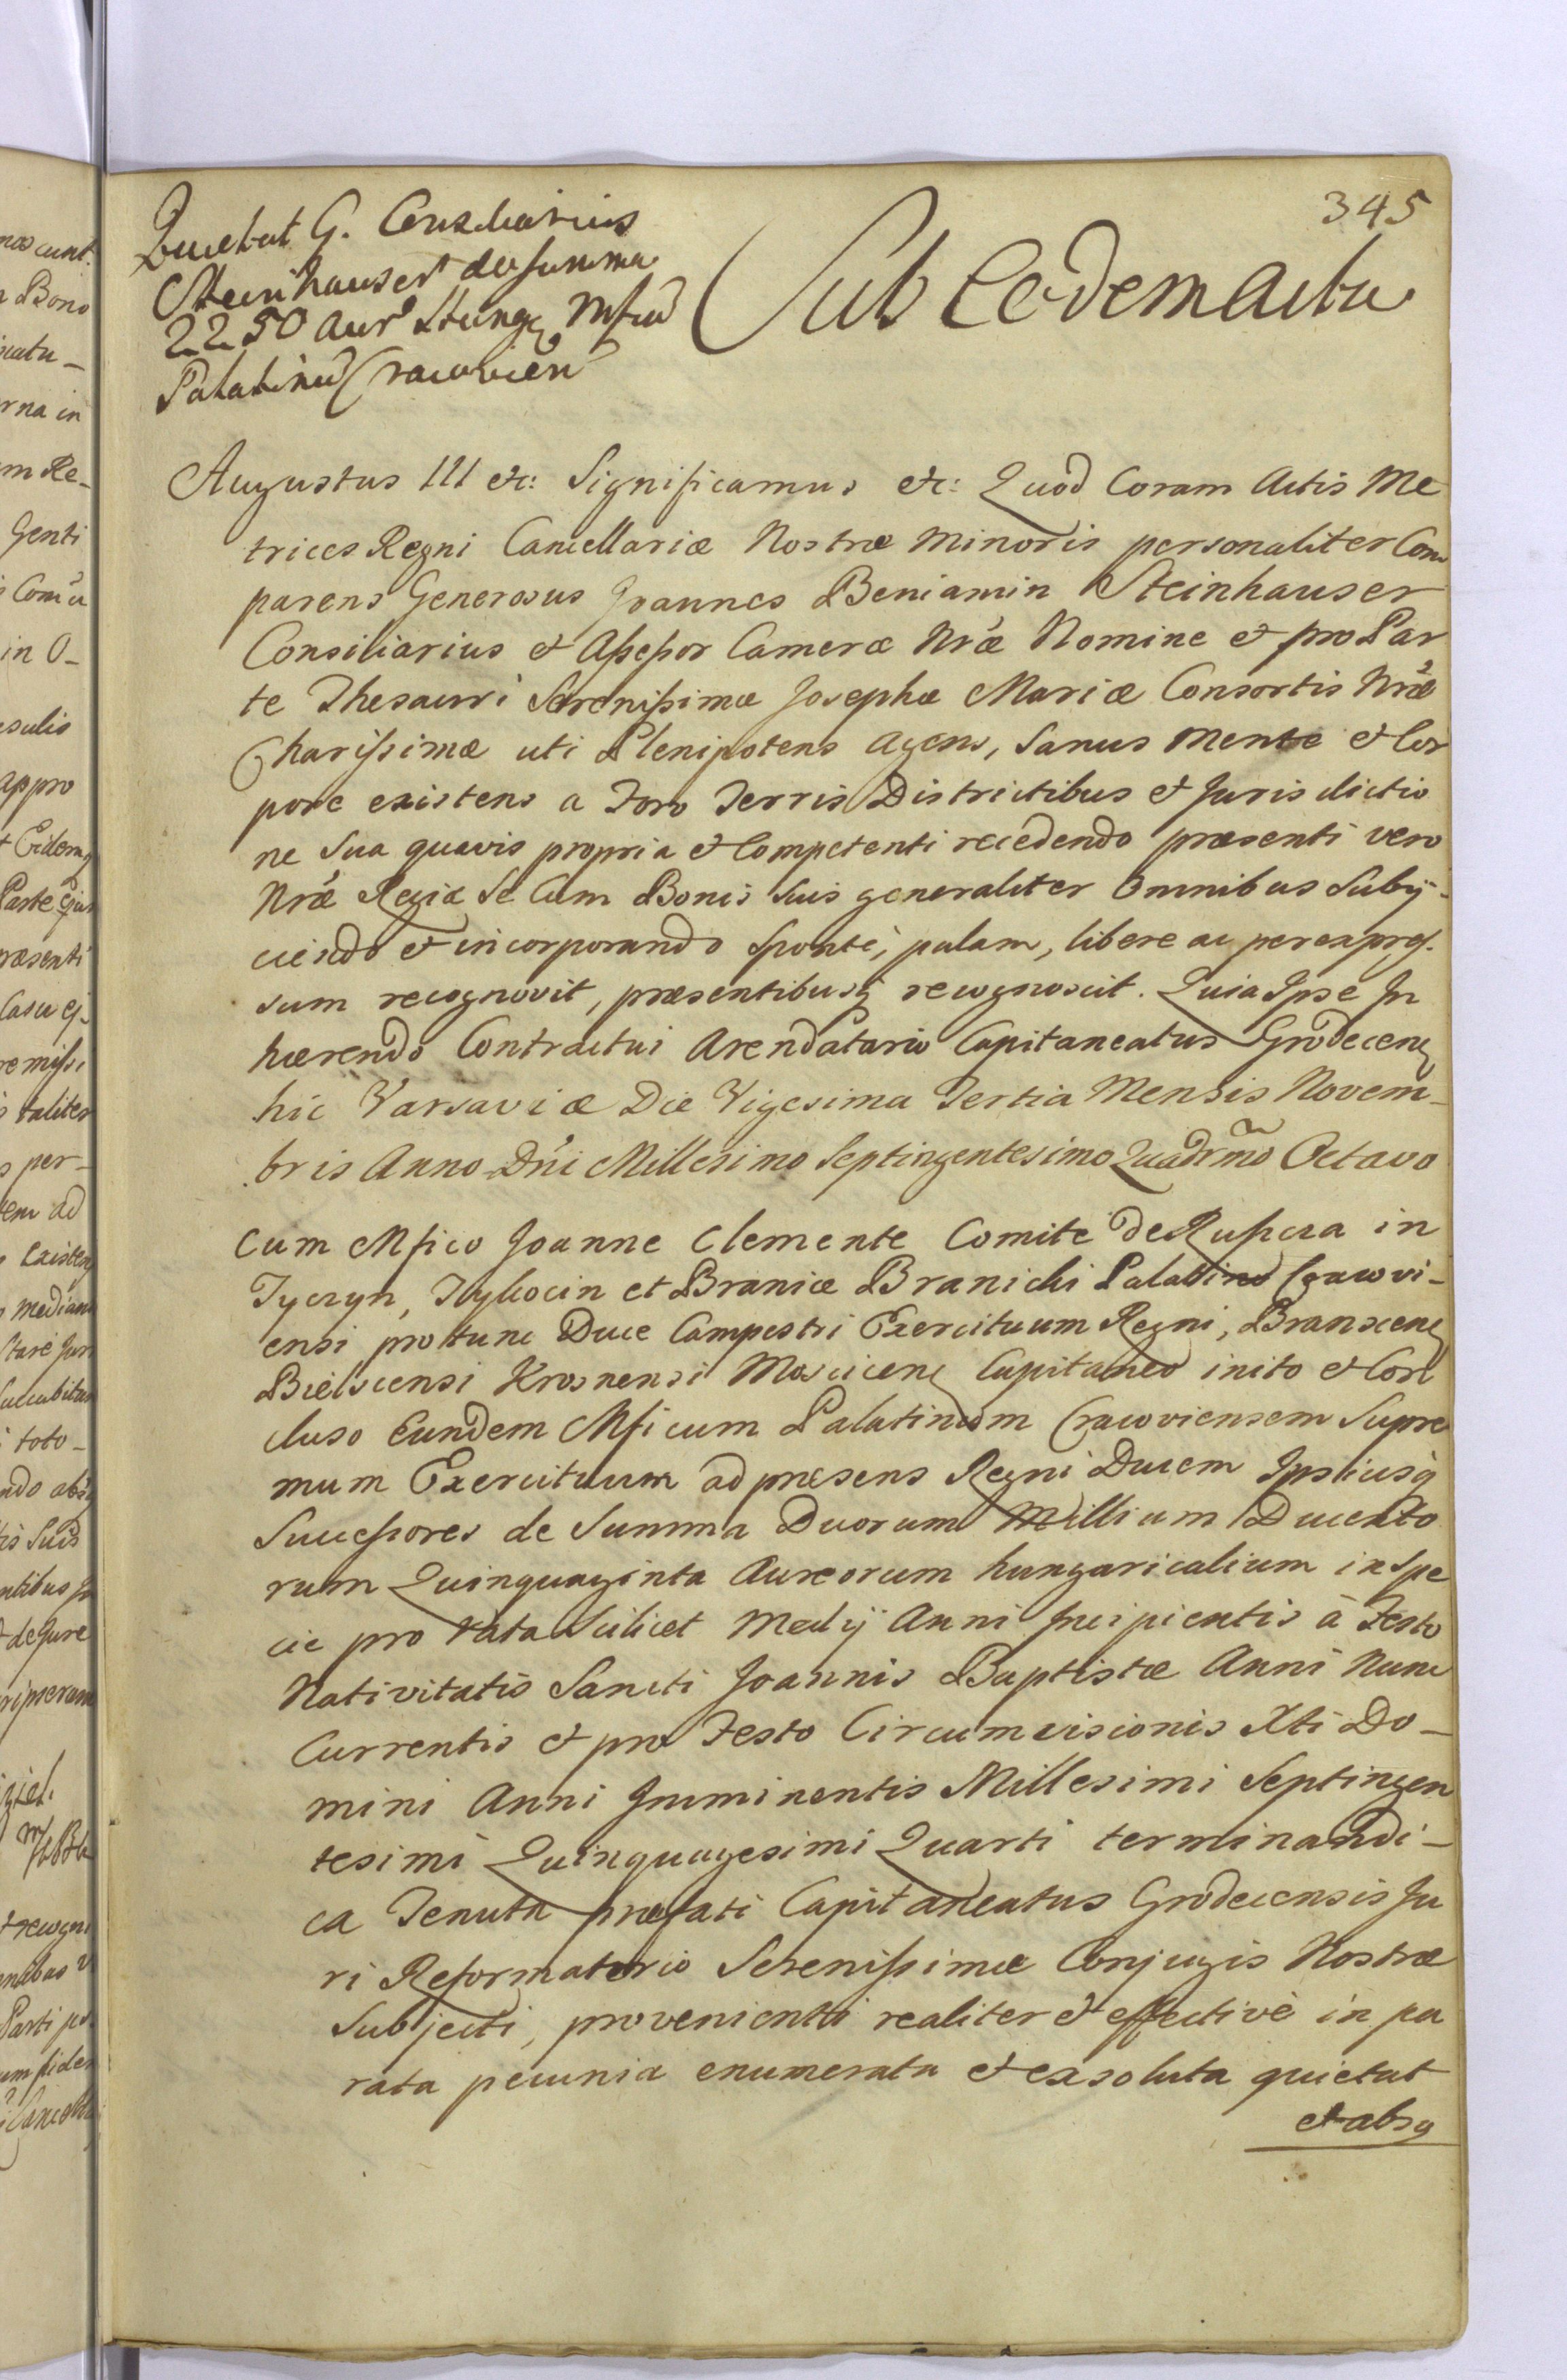 345
Quietat G. Consiliarius
Steinhauser de summa
2250 aur: Hung: Mficū
Palatinū Cracovień
Sub Eodem actu
Augustus III etc: Significamus etc: Quod Coram Actis Me
trices Regni Cancellariæ Nostræ Minoris personaliter Com
parens Generosus Joannes Beniamin Steinhauser
Consiliarius et Assessor Cameræ Nræ Nomine et pro Par
te Thesauri Serenissimæ Josephæ Mariæ Consortis Nræ
Charissimæ uti Plenipotens agens, Sanus mente et Cor
pore existens a Foro Terris Districtibus et Jurisdictio
ne Sua quavis propria et Competenti recedendo præsenti vero
Nræ Regiæ Se Cum Bonis Suis generaliter Omnibus Subij-
ciendo et incorporando Sponte, palam, libere ac per expres-
sum recognovit, præsentibusq recognoscit. Quia Ipse In
hærendo Contractui Arendatario Capitaneatus Grodecenȩ
hic Varsaviæ Die Vigesima Tertia Mensis Novem-
bris Anno Dni Millesimo Septingentesimo Quadrmo Octavo
Cum Mfico Joanne Clemente Comite de Ruscza in
Tyczyn, Tykocin et Branice Branicki Palatino Cracovi-
ensi protunc Duce Campestri Exercituum Regni, Branscenȩ
Bielscensi Krosnensi Moscicenȩ Capitaneo inito et Con
cluso Eundem Mficum Palatinum Cracoviensem Supre
mum Exercituum ad præsens Regni Ducem Ipsiusq
Successores de Summa Duorum Millium Ducento
rum Quinquaginta Aureorum hungaricalium in Spe
cie pro rata Scilicet Medij Anni Incipientis à Festo
Nativitatis Sancti Joannis Baptistæ Anni Nunc
Currentis et pro Festo Circumcisionis Xti Do-
mini Anni Imminentis Millesimi Septingen
tesimi Quinquagesimi Quarti terminandi-
ca Tenuta præfati Capitaneatus Grodecensis Ju
ri Reformatorio Serenissimæ Conjugis Nostræ
Subjecti, provenienti realiter et effectivè in pa
rata pecunia enumerata et exsoluta quietat
et absq